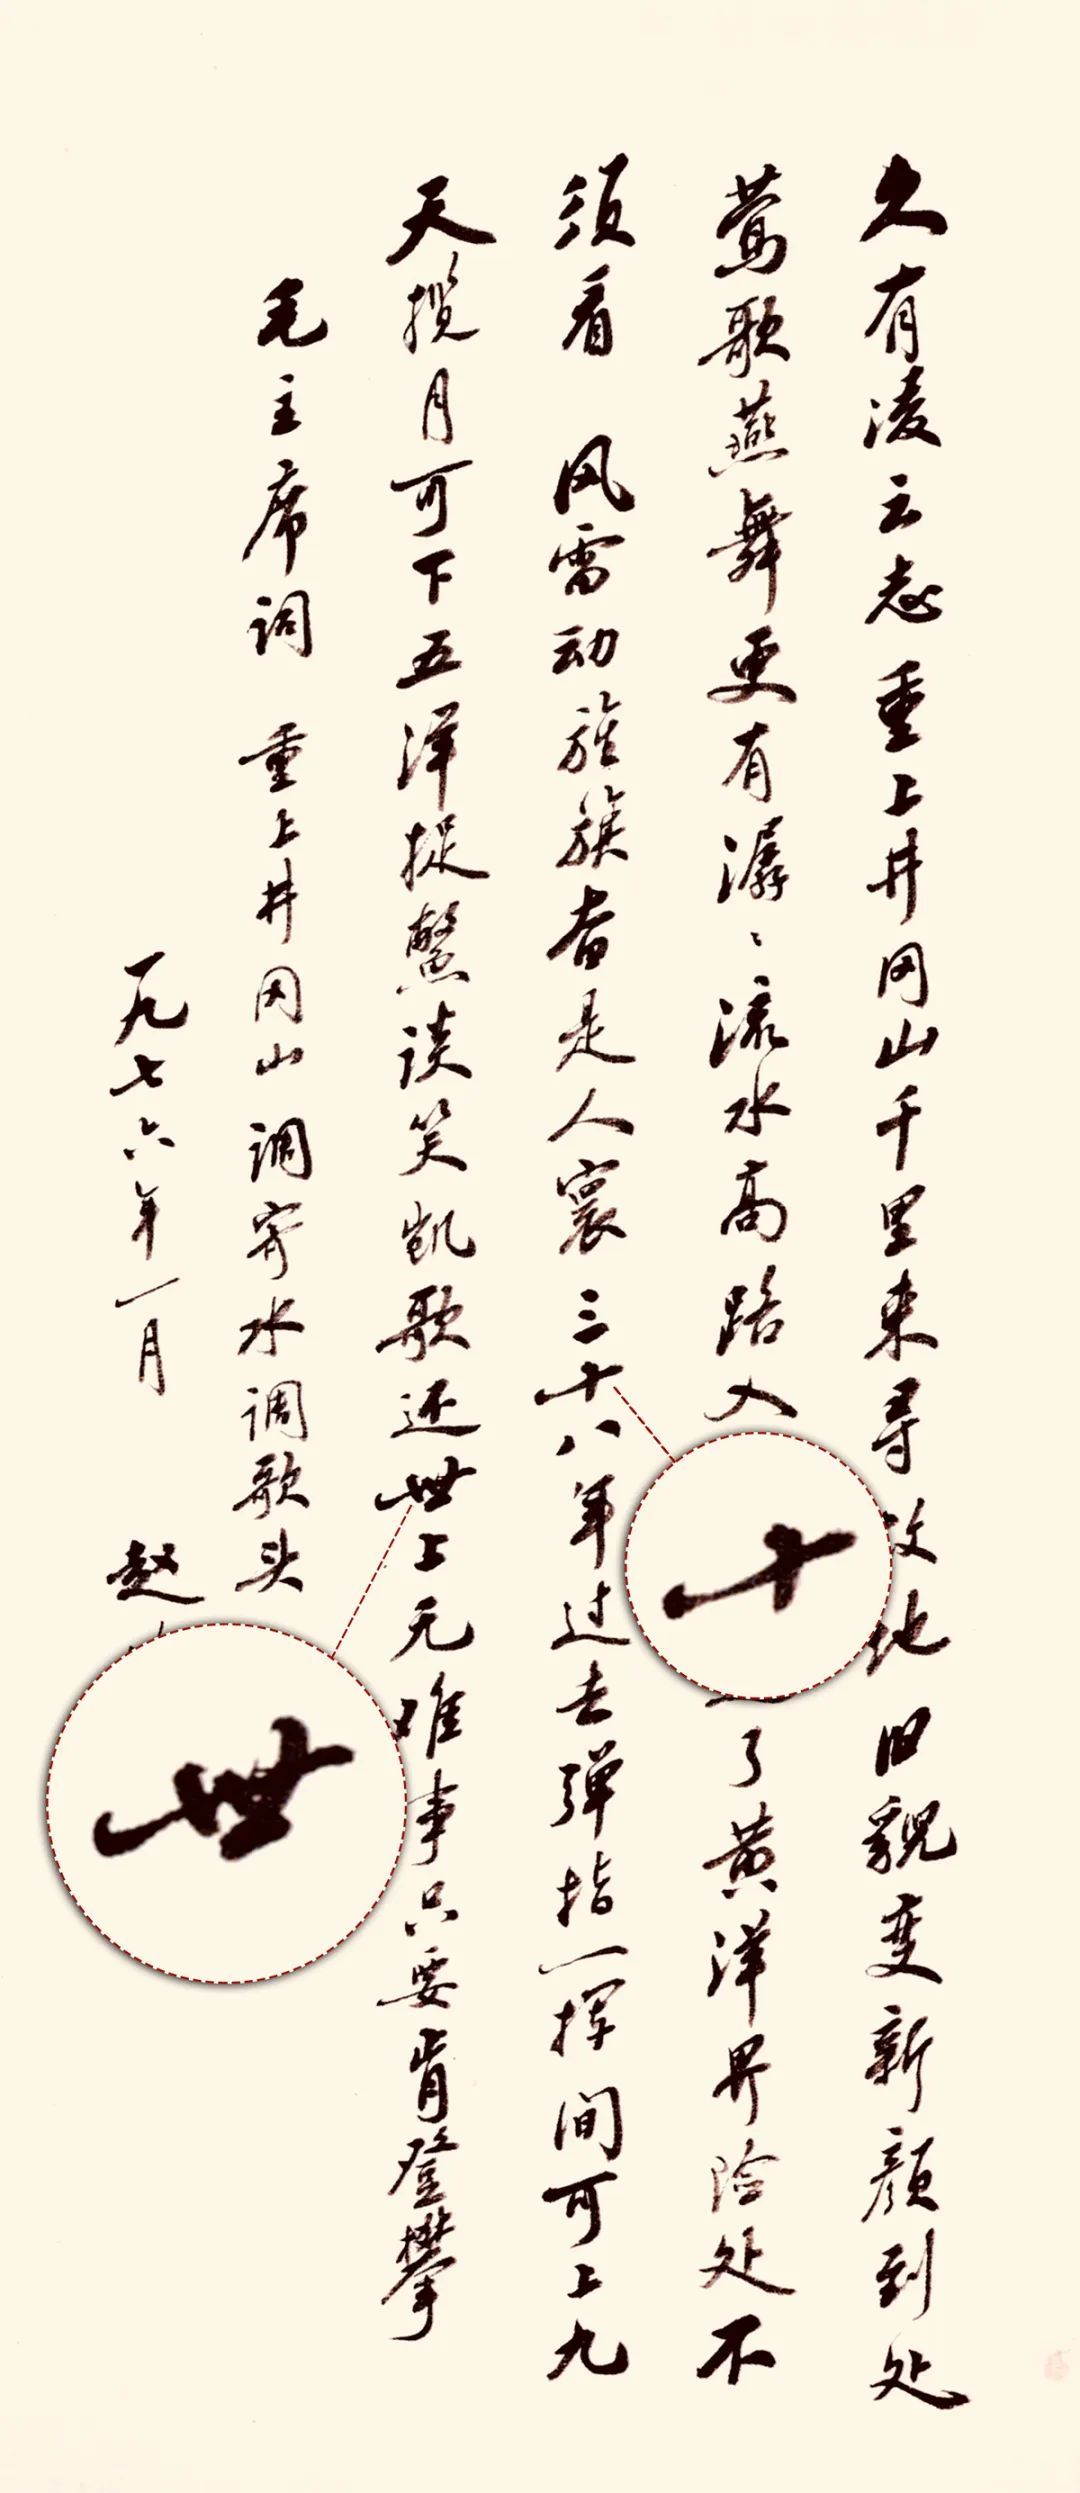 久有凌云志 重上井冈山千里来寻故地旧貌变新颜到处
莺歌燕舞更有潺〻流水高路入 了黄洋界险处不
须看 风雷动旌旗奋是人寰三十八年过去弹指一挥间可上九
天揽月可下五洋捉鳖谈笑凯歌还世上无难事只要肯登攀
毛主席词 重上井冈山 调寄水调歌头
一九七六年一月 赵
十
世